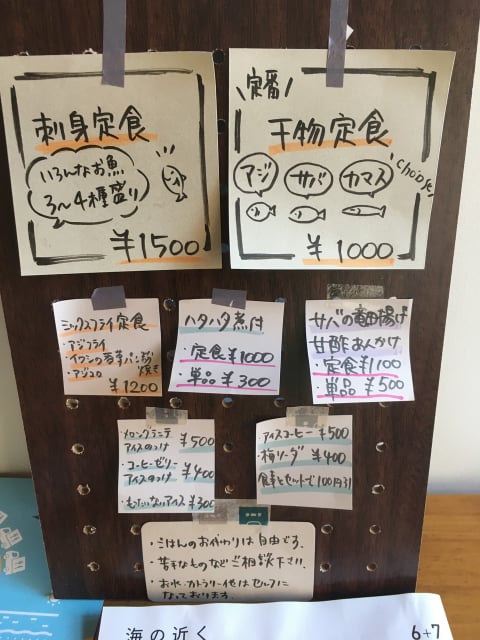 刺身定食
いろんなお魚
3〜4種盛り
¥1500
定番
干物定食
アジ サバ カマス
choose!
¥1000
ミックスフライ定食
・アジフライ
・イワシの香草パン粉
焼き
・アジコロ
¥1200
ハタハタ煮付
・定食¥1000
・単品¥300
サバの竜田揚げ
甘酢あんかけ
・定食¥1100
・単品¥500
・メロングラニテ
アイスのっけ ¥500
・コーヒーゼリー
アイスのっけ ¥400
・もったいないアイス ¥300
・アイスコーヒー ¥500
・梅ソーダ ¥400
食事とセットで100円引
・ごはんのおかわりは自由です.
・苦手なものなどご相談下さい.
・お水・カトラリー他はセルフに
なっております.
海の近く
6+7